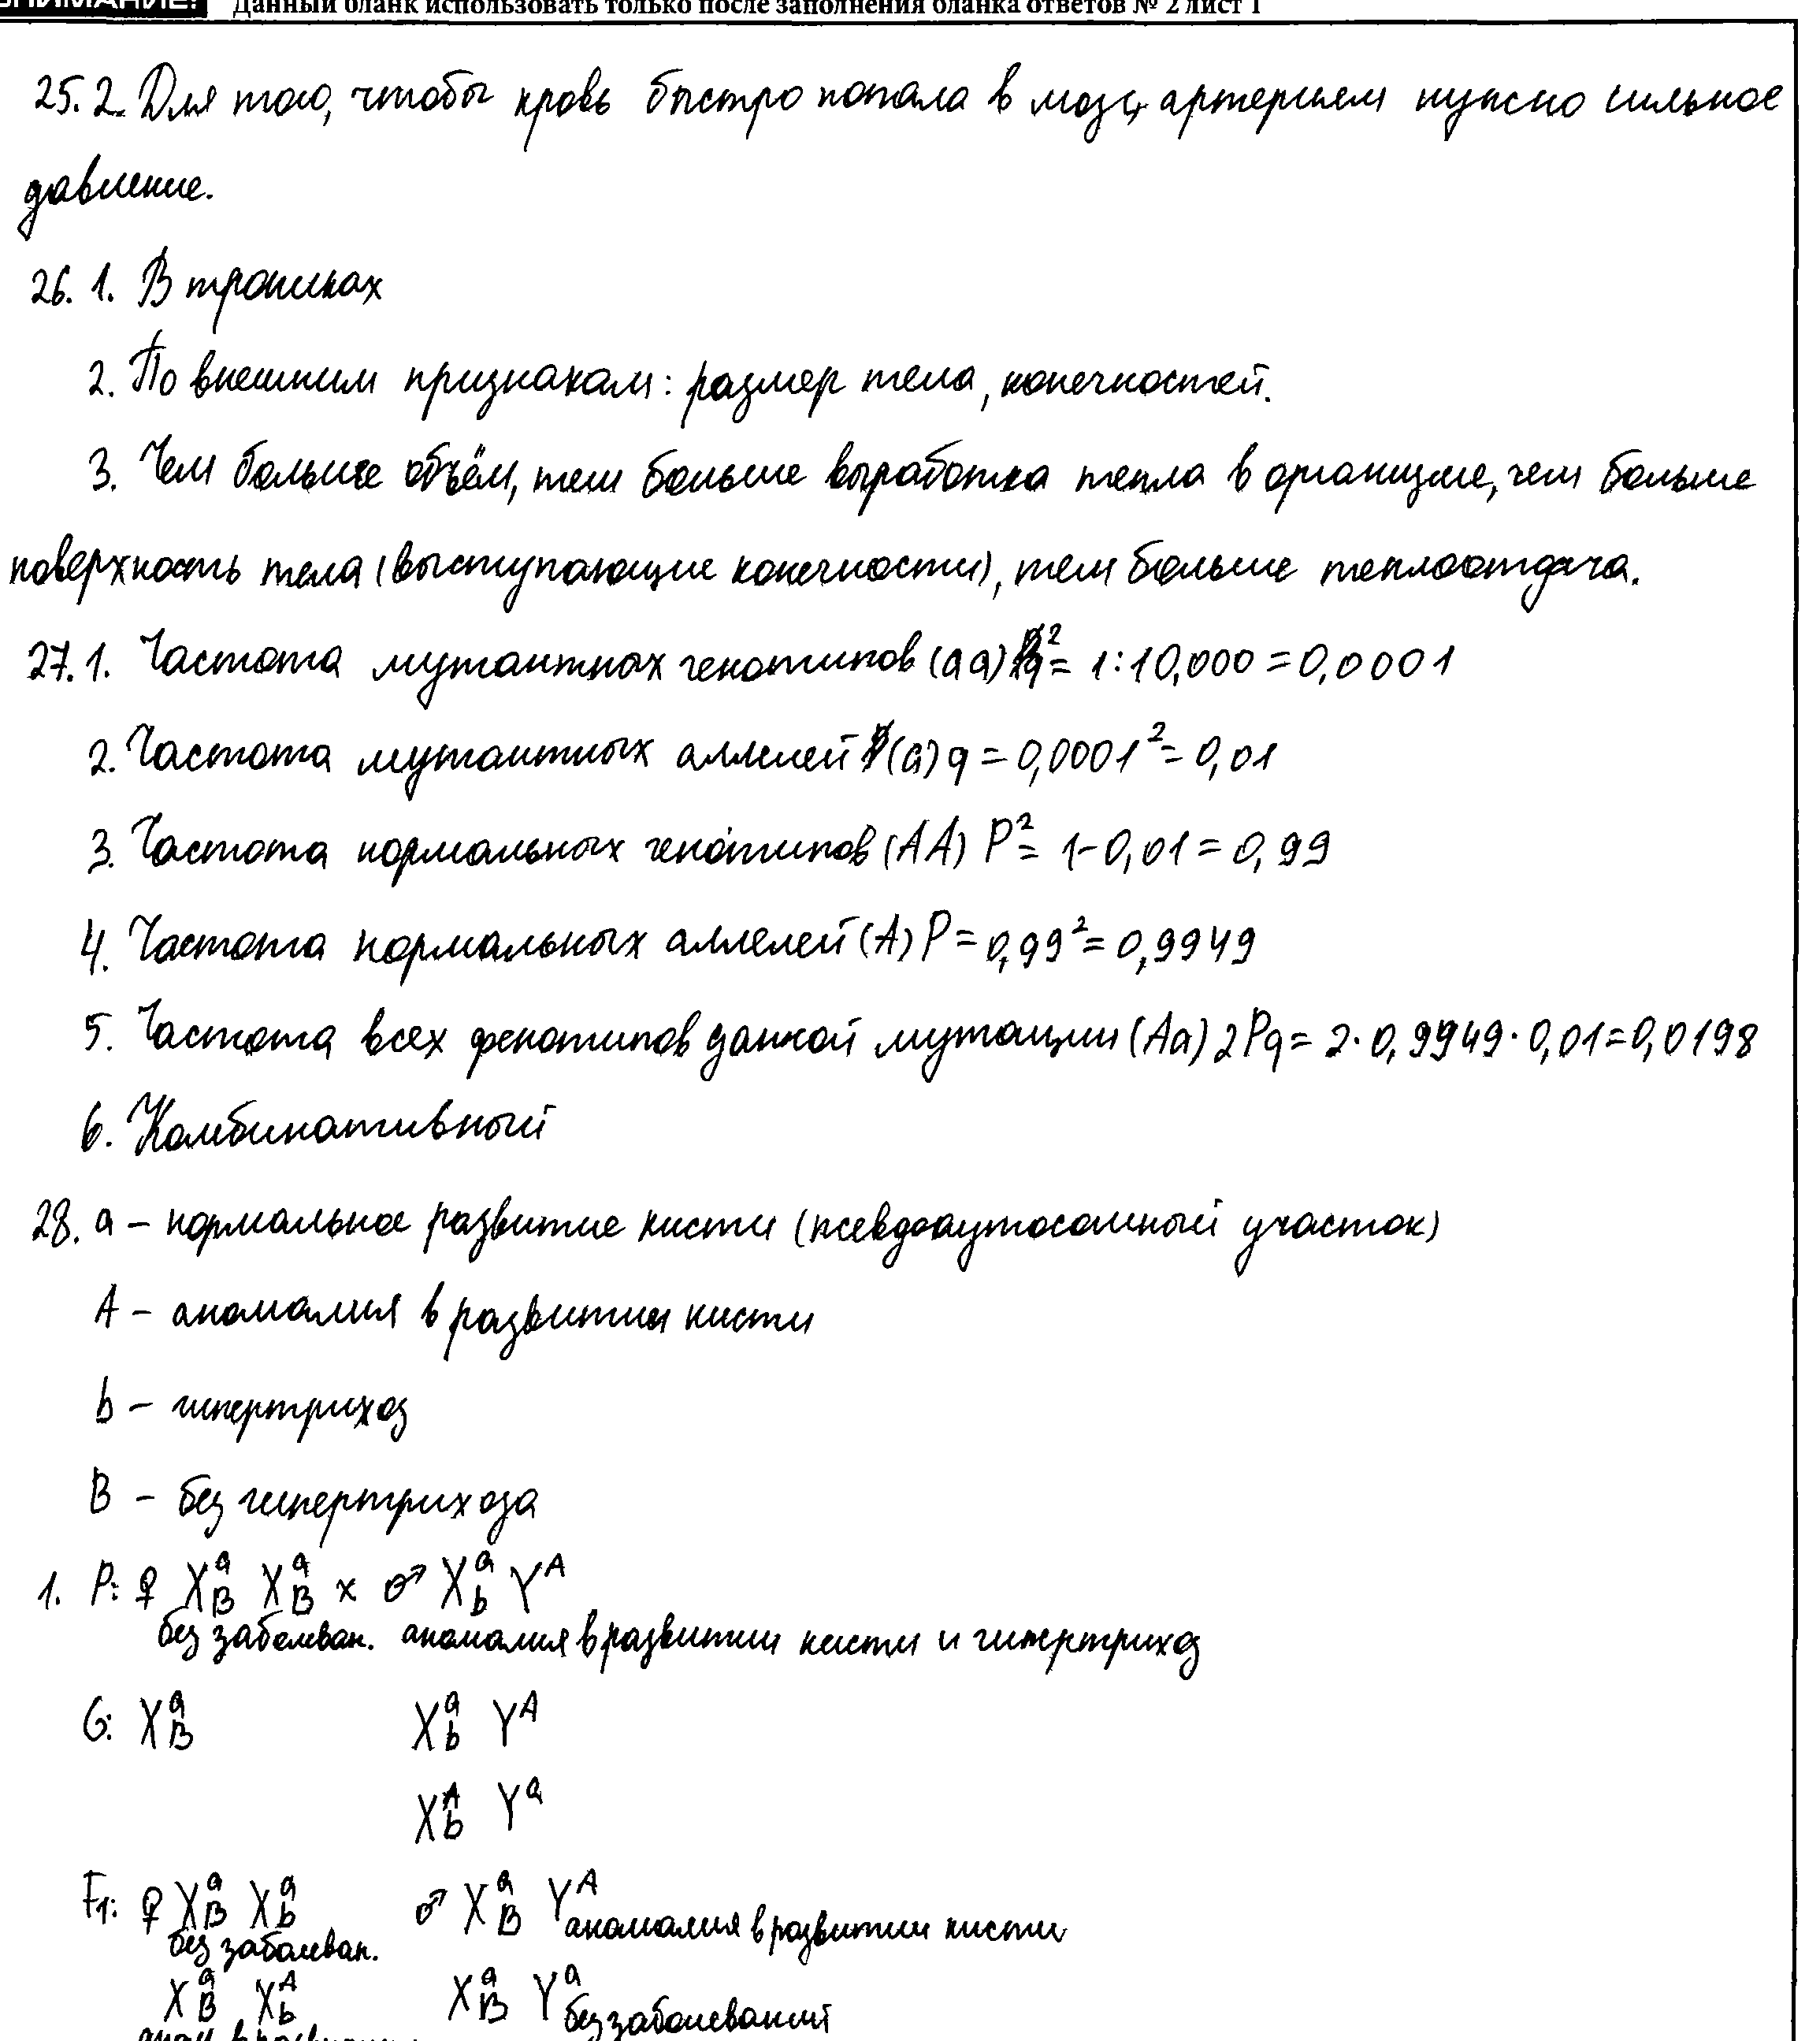 ВНИМАНИЕ! Данный бланк использовать только после заполнения бланка ответов № 2 лист 1
25.2. Для того, чтобы кровь быстро попала в мозг, артериям нужно сильное
давление.
26. 1. В тропиках
2. По внешним признакам: размер тела, конечностей.
3. Чем больше объём, тем больше выработка тепла в организме, чем больше
поверхность тела (выступающие конечности), тем больше теплоотдача.
27.1. Частота мутантных генотипов (aa) q² = 1:10,000 = 0,0001
2. Частота мутантных аллелей (a) q = 0,0001² = 0,01
3. Частота нормальных генотипов (AA) P² = 1-0,01 = 0,99
4. Частота нормальных аллелей (A) P = 0,99² = 0,9949
5. Частота всех фенотипов данной мутации (Aa) 2Pq = 2·0,9949·0,01=0,0198
6. Комбинативный
28. a – нормальное развитие кисти (псевдоаутосомный участок)
A – аномалия в развитии кисти
b – гипертрихоз
B – без гипертрихоза
1. P: ♀ X^a_B X^a_B x ♂ X^a_b Y^A
без заболеван. аномалия в развитии кисти и гипертрихоз
G: X^a_B X^a_b Y^A
X^A_b Y^a
F1: ♀ X^a_B X^a_b ♂ X^a_B Y^A
без заболеван. аномалия в развитии кисти
X^a_B X^A_b X^a_B Y^a
без заболеваний